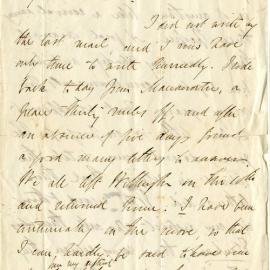 I did not write by
the last mail and I now have
only time to write hurriedly. I rode
back to day from
miles off and after
an absence of five days found
a good many letters to answer.
We all left Wellington on the
and returned home. I have been
continually on the move so that
I can hardly be said to have been
my